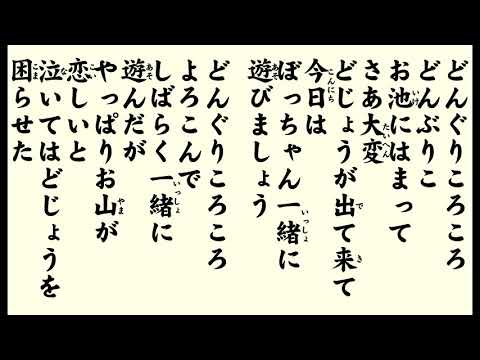 どんぐりころころ
どんぶりこ
お池にはまって
さあ大変
どじょうが出て来て
今日は
ぼっちゃん一緒に
遊びましょう
どんぐりころころ
よろこんで
しばらく一緒に
遊んだが
やっぱりお山が
恋しいと
泣いてはどじょうを
困らせた